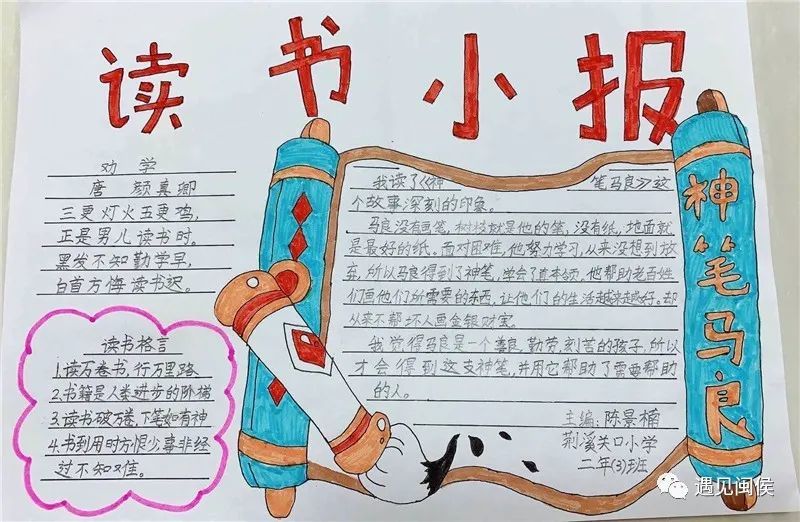 读书小报
劝学
唐 颜真卿
三更灯火五更鸡,
正是男儿读书时。
黑发不知勤学早,
白首方悔读书迟。
读书格言
1.读万卷书,行万里路
2.书籍是人类进步的阶梯
3.读书破万卷,下笔如有神
4.书到用时方恨少事非经
过不知难。
我读了《神 笔马良》这
个故事深刻的印象。
马良没有画笔,树枝就是他的笔,没有纸,地面就
是最好的纸。面对困难,他努力学习,从来没想到放
弃,所以马良得到了神笔,学会了真本领。他帮助老百姓
们画他们所需要的东西,让他们的生活越来越好。却
从来不帮坏人画金银财宝。
我觉得马良是一个善良,勤劳,刻苦的孩子,所以
才会得到这支神笔,并用它帮助了需要帮助
的人。
主编:陈景楠
荆溪关口小学
二年(3)班
神笔马良
遇见闽侯